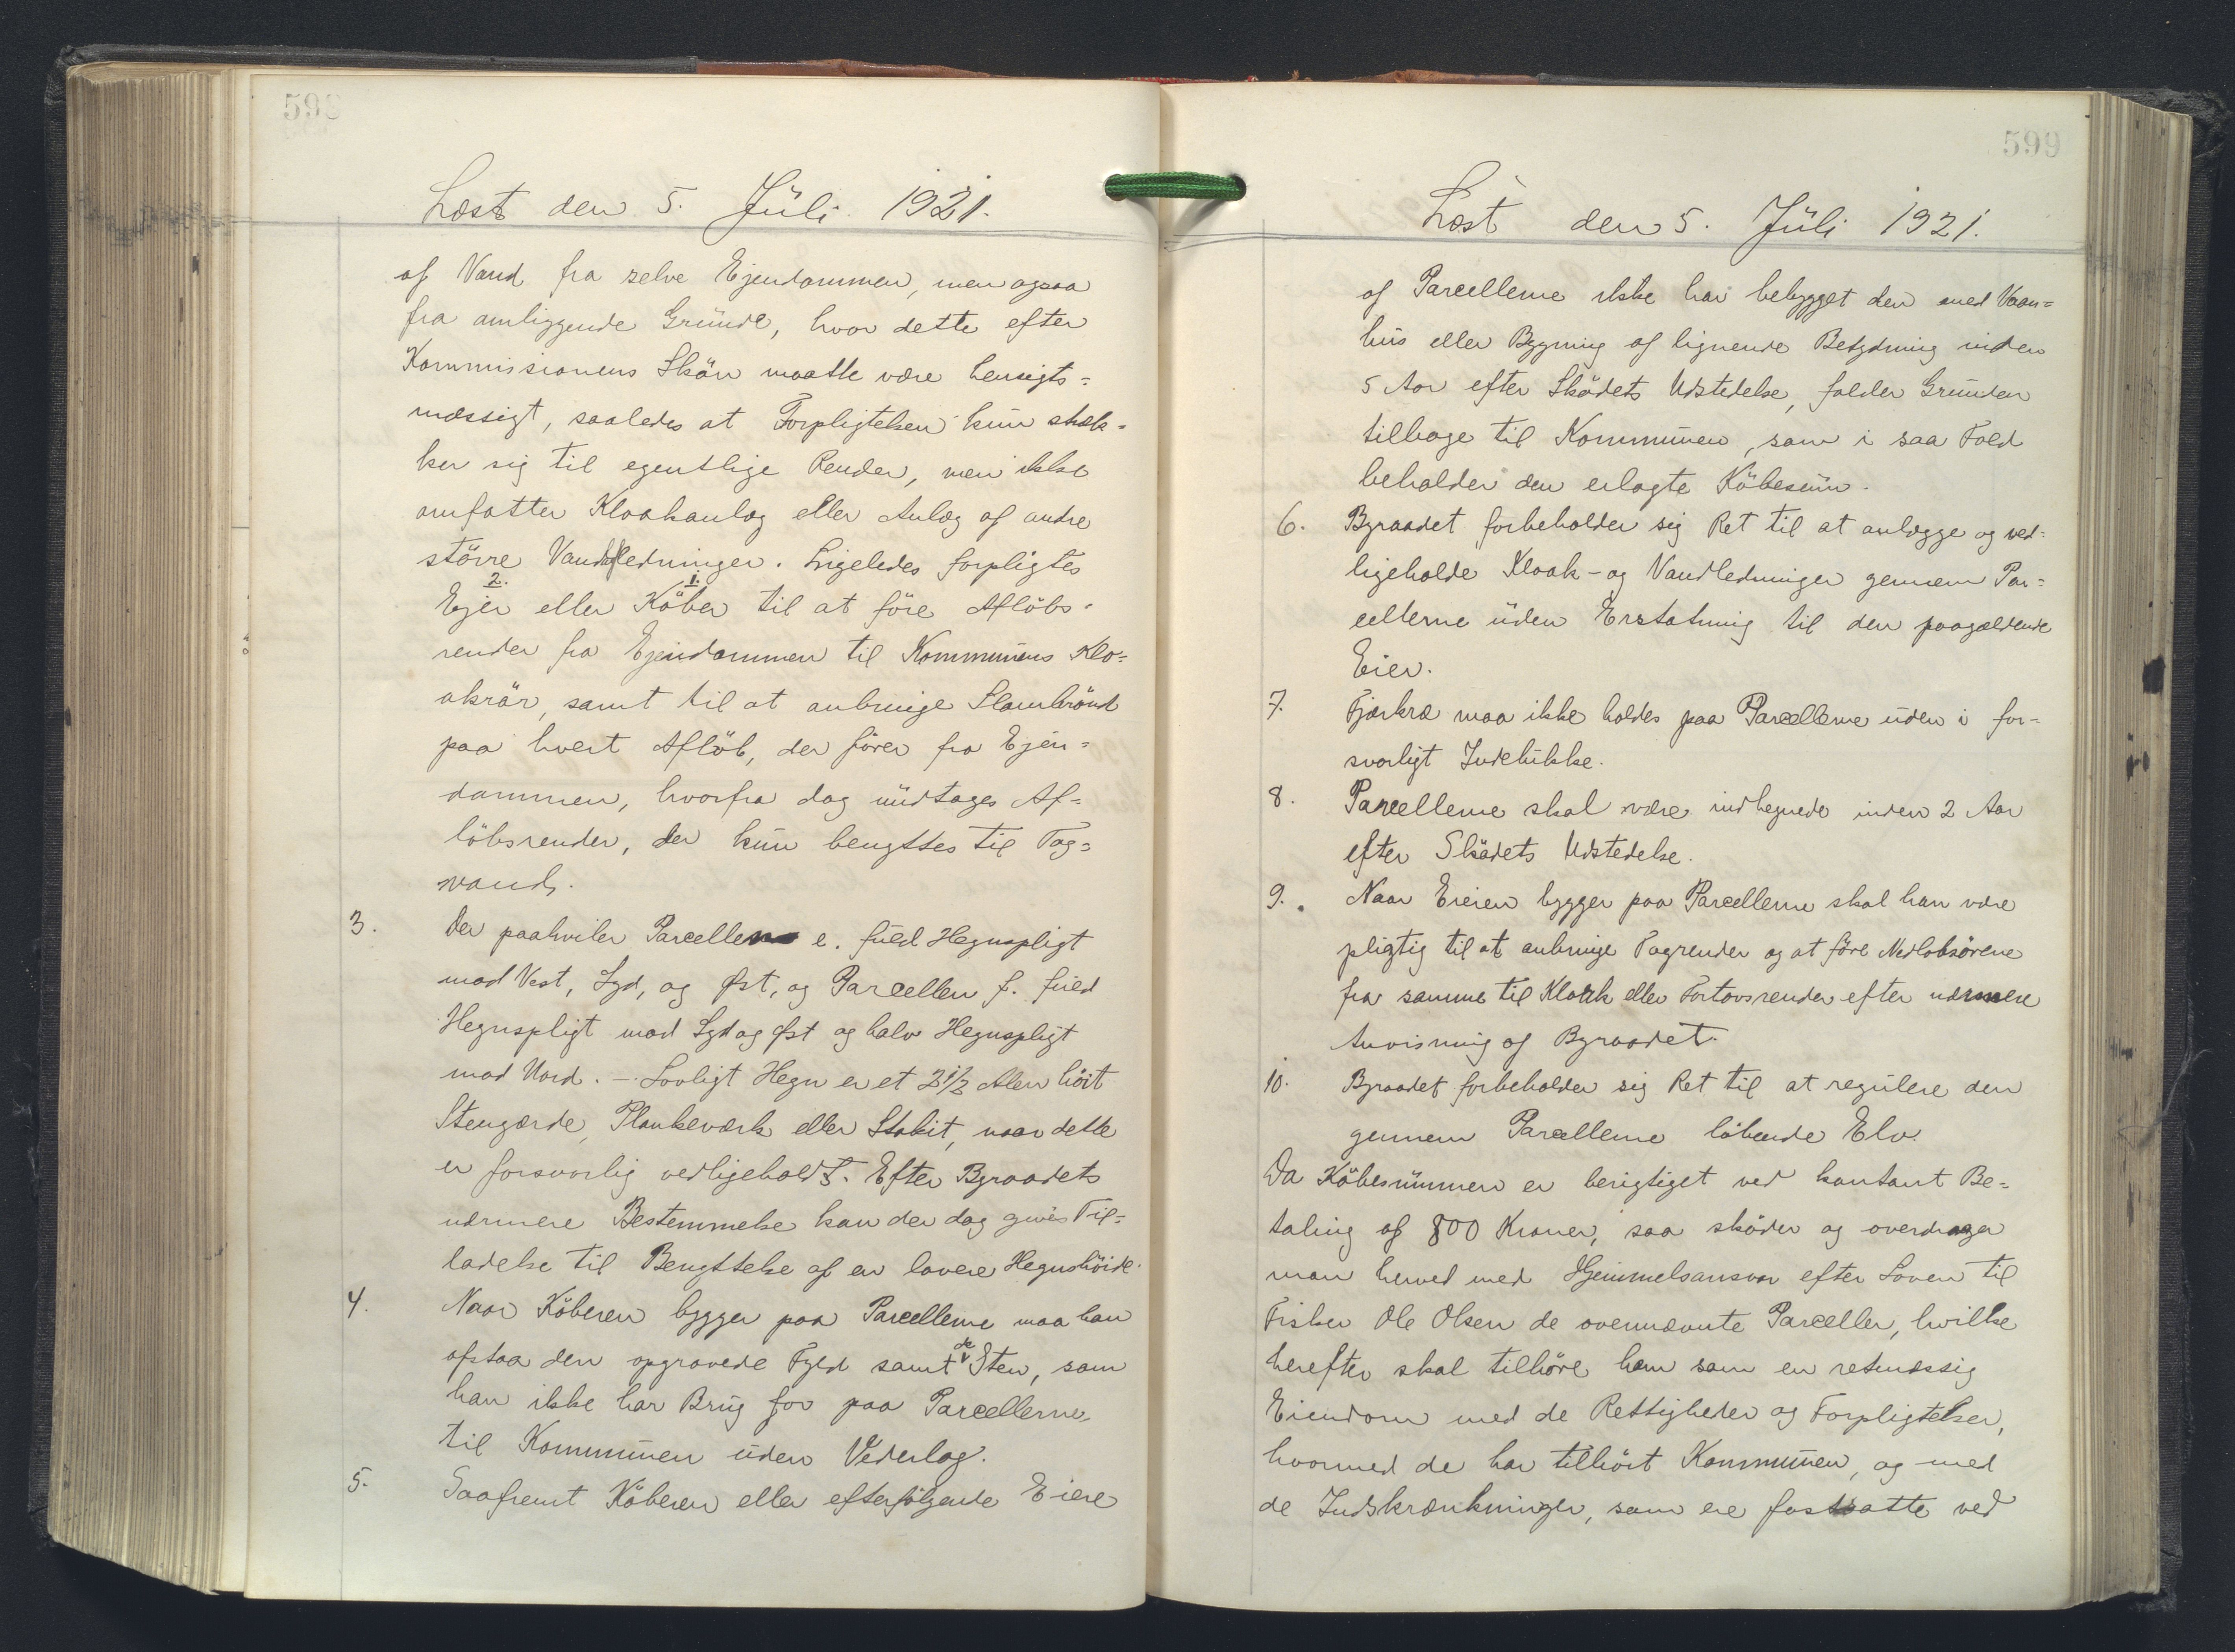 598
Læst den 5. Jüli 1921.
af Vand fra selve Ejendommen, men ogsaa
fra omliggende Gründe, hvor dette efter
Kommissionens Skön maatte være hensigts=
mæssigt, saaledes at Forpligtelsen kün stræk=
ker sig til egentlige Render, men ikke
omfatter Kloakanlæg eller Anlæg af andre
större Vandledninger. Ligeledes forpligtes
2. 1.
Ejer eller Köber til at före Aflöbs=
render fra Ejendommen til Kommünens Klo=
akrör, samt til at anbringe Slambrönd
paa hvert Aflöb, der förer fra Ejen=
dommen, hvorfra dog ündtages Af=
löbsrender, der kün benyttes til Tag=
vand.
3. Der paahviler Parcellen e. füld Hegnspligt
mod Vest, Syd, og Øst, og Parcellen f. füld
Hegnspligt mod Syd og Øst og halv Hegnspligt
mod Nord. - Lovligt Hegn er et 2 1/2 Alen höit
Stengærde, Plankeværk eller Stakit, naar dette
er forsvarlig vedligeholdt. Efter Byraadets
nærmere Bestemmelse kan der dog gives Til=
ladelse til Benyttelse af en lavere Hegnshöide.
4. Naar Köberen bygger paa Parcellerne maa han
afstaa den opgravede Fyld samt de Sten, som
han ikke har Brüg for paa Parcellerne,
til Kommünen üden Vederlag.
5. Saafremt Köberen eller efterfölgende Eiere
599
Læst den 5. Jüli 1921.
af Parcellerne ikke har bebygget den med Vaan=
hüs eller Bygning af lignende Betydning inden
5 Aar efter Sködets Udstedelse, falder Gründen
tilbage til Kommünen, som i saa Fald
beholder den erlagte Köbesüm.
6. Byraadet forbeholder sig Ret til at anlægge og ved=
ligeholde Kloak- og Vandledninger gennem Par=
cellerne üden Erstatning til den paagældende
Eier.
7. Fjærkræ maa ikke holdes paa Parcellerne üden i for=
svarligt Indelükke.
8. Parcellerne skal være indhegnede inden 2 Aar
efter Skødets Udstedelse.
9. Naar Eieren bygger paa Parcellerne skal han være
pligtig til at anbringe Tagrender og at före Nedlobsörene
fra samme til Kloak eller Fortovsrender efter nærmere
Anvisning af Byraadet.
10. Byraadet forbeholder sig Ret til at regülere den
gennem Parcellerne löbende Elv.
Da Köbesümmen er berigtiget ved kontant Be=
taling af 800 Kroner, saa sköder og overdrager
man herved med Hjemmelsansvar efter Loven til
Fisker Ole Olsen de ovennævnte Parceller, hvilke
herefter skal tilhöre ham som en retmæssig
Eiendom med de Rettigheder og Forpligtelser,
hvormed de har tilhört Kommünen, og med
de Indskrænkninger, som ere fastsatte ved